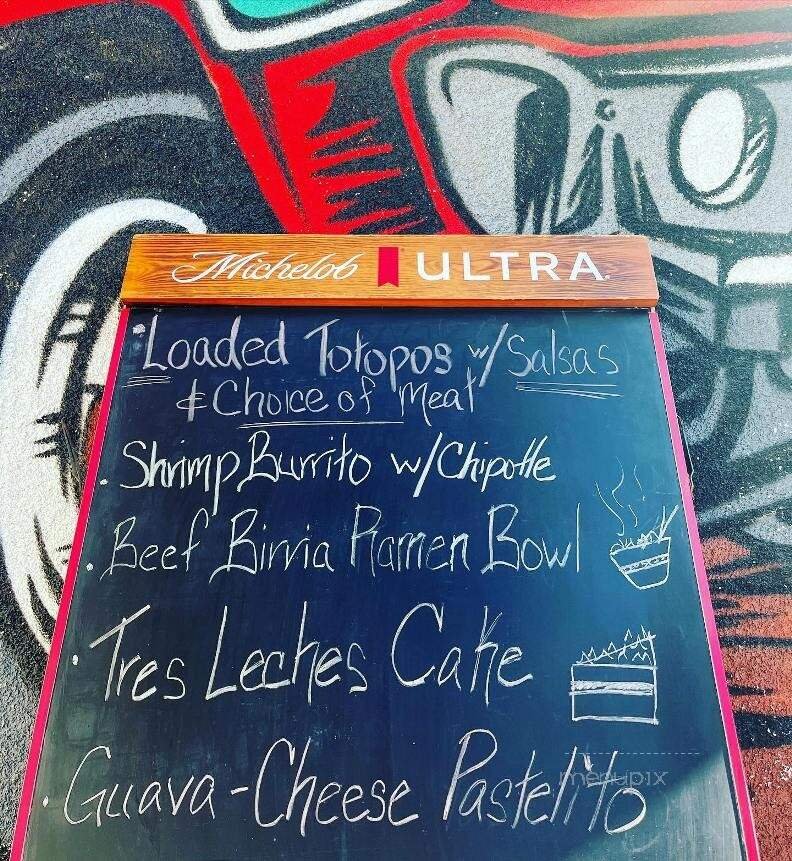 Michelob ULTRA
· Loaded Totopos w/ Salsas
& Choice of Meat
· Shrimp Burrito w/ Chipotle
· Beef Birria Ramen Bowl
· Tres Leches Cake
· Guava-Cheese Pastelito
menupix